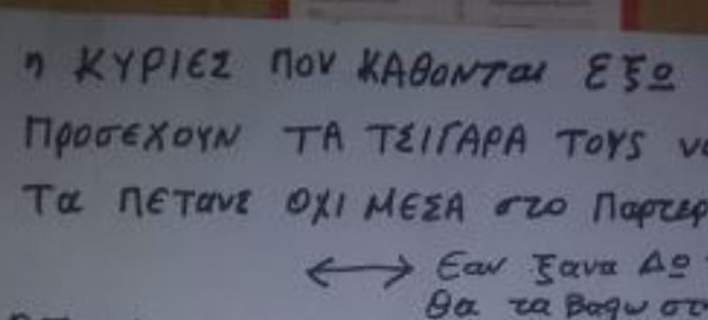 η ΚΥΡΙΕΣ ΠΟΥ ΚΑΘΟΝΤαι ΕξΩ
ΠροσΕΧΟΥΝ ΤΑ ΤΣΙΓΑΡΑ ΤΟΥς
Τα ΠΕΤανε ΟΧΙ ΜΕΣΑ στο
Εαν ξανα ΔΩ
Θα τα Βαθω